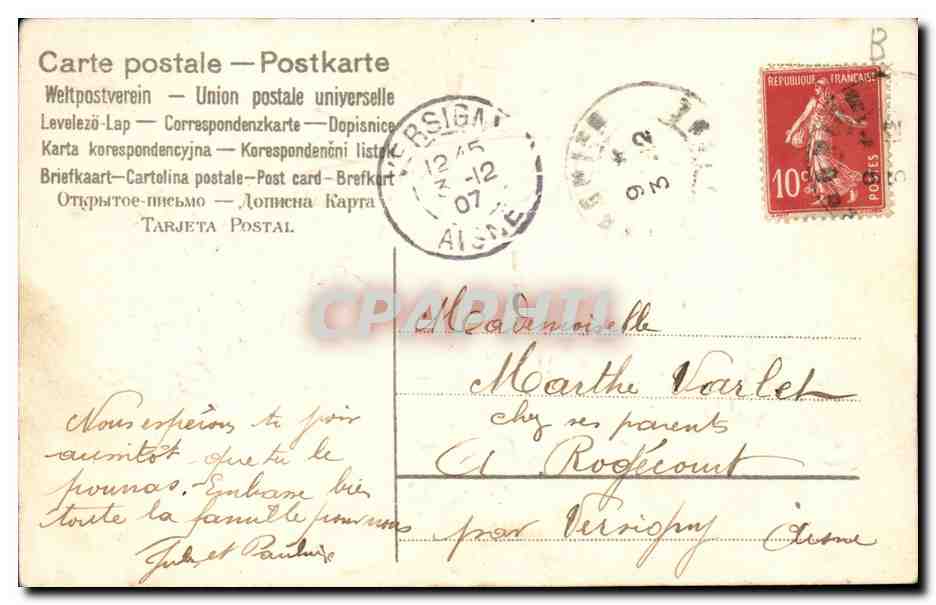 Carte postale — Postkarte
Weltpostverein — Union postale universelle
Levelező-Lap — Correspondenzkarte — Dopisnice
Karta korespondencyjna — Korespondenční listek
Briefkaart — Cartolina postale — Post card — Brefkort
Открытое-письмо — Дописна Карта
TARJETA POSTAL
VERSIGNY
12 45
3 -12
07
AISNE
9
3 12
B
REPUBLIQUE FRANÇAISE
10c
POSTES
CPARHTI
Mademoiselle
Marthe Varlet
chez ses parents
A Rogécourt
par Versigny Aisne
Nous espérons te voir
aussitôt que tu le
pourras. Embrasse bien
toute la famille pour nous
Jules et Pauline